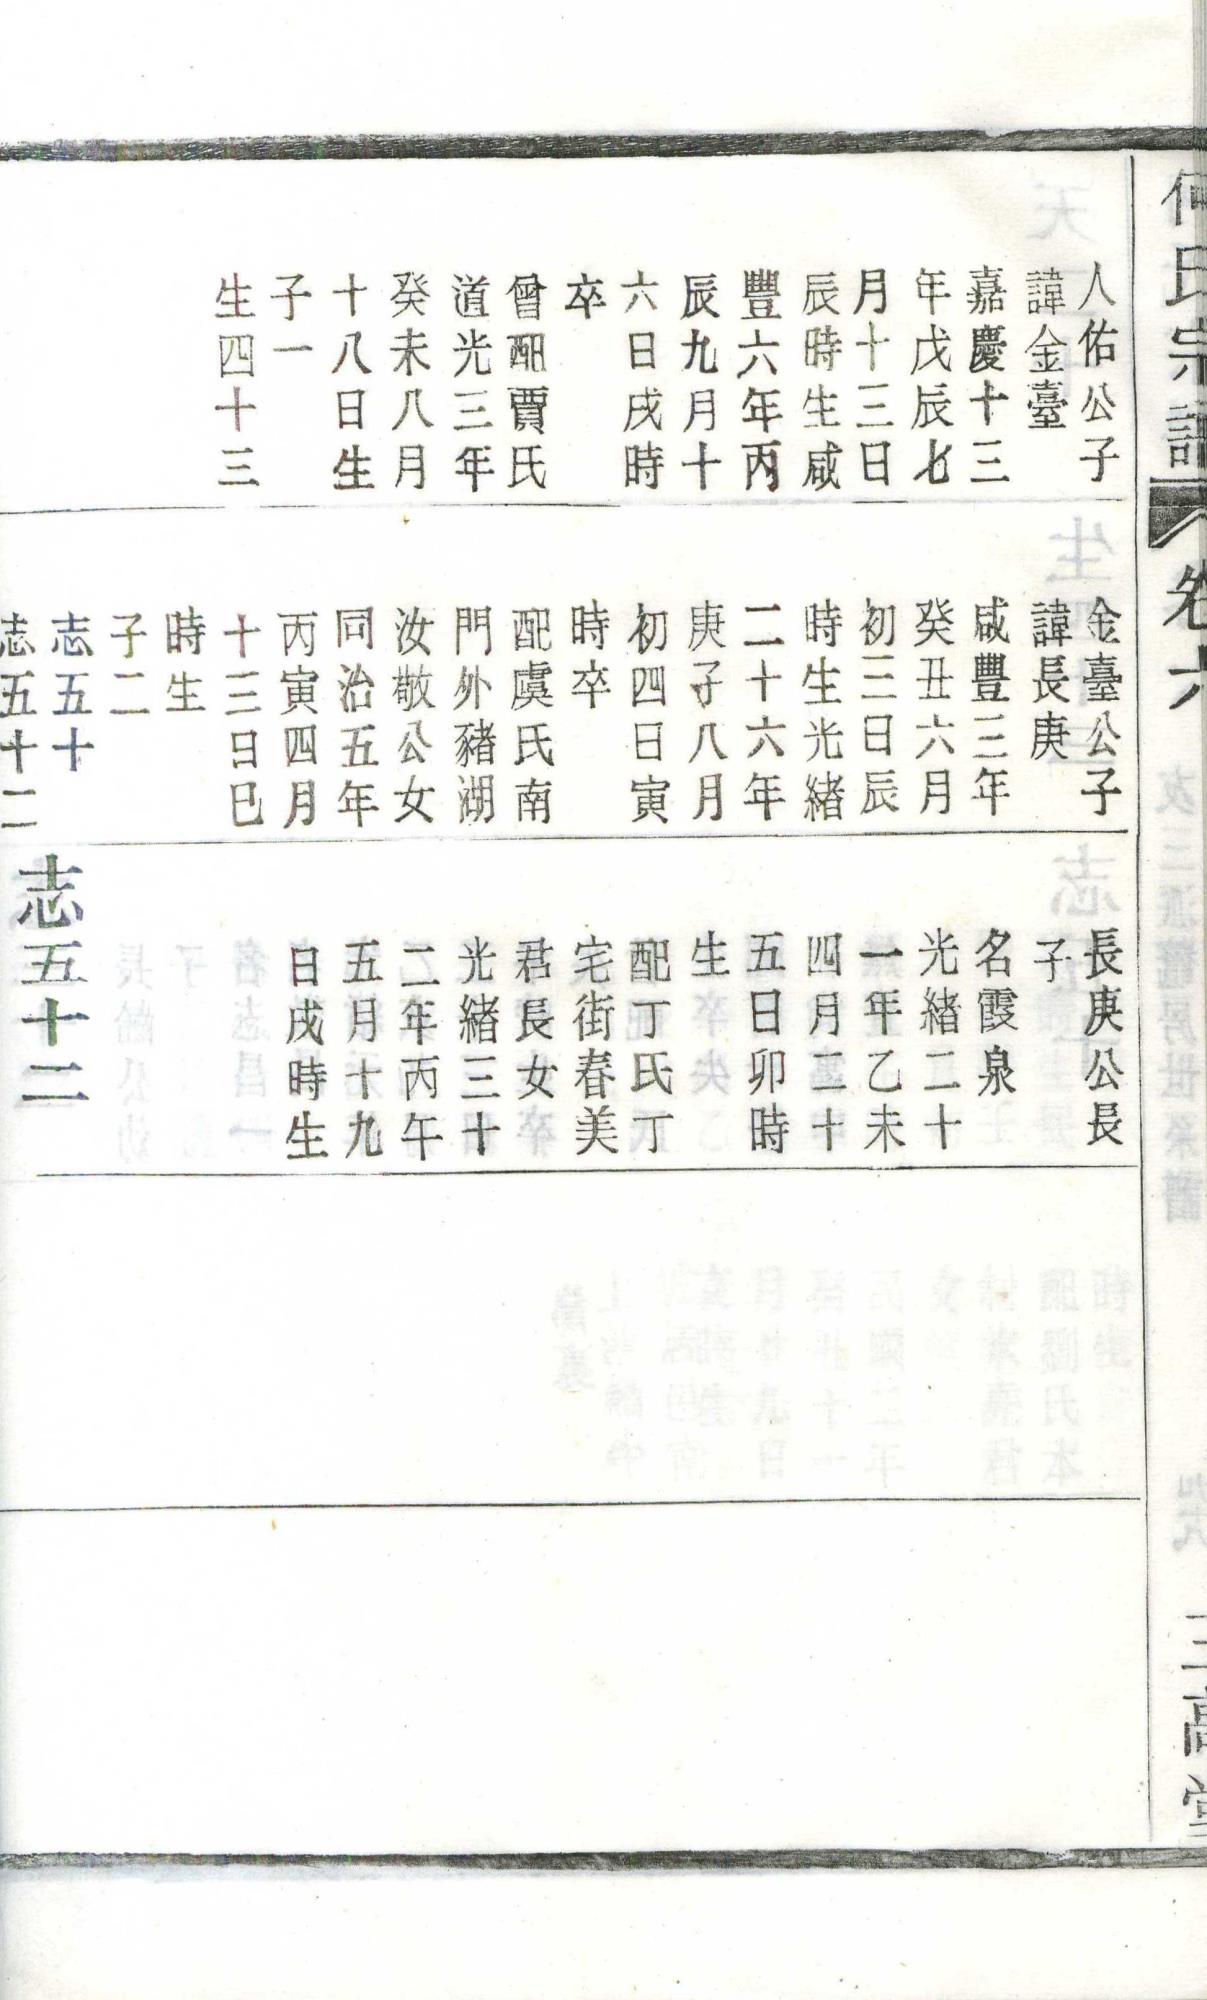 何氏宗譜
卷六
三高堂
人佑公子
諱金臺
嘉慶十三
年戊辰七
月十三日
辰時生咸
豐六年丙
辰九月十
六日戌時
卒
曾配賈氏
道光三年
癸未八月
十八日生
子一
生四十三
金臺公子
諱長庚
咸豐三年
癸丑六月
初三日辰
時生光緒
二十六年
庚子八月
初四日寅
時卒
配虞氏南
門外豬湖
汝敬公女
同治五年
丙寅四月
十三日巳
時生
子二
志五十
志五十二
長庚公長
子
名霞泉
光緒二十
一年乙未
四月二十
五日卯時
生
配丁氏丁
宅街春美
君長女
光緒三十
二年丙午
五月十九
日戌時生
志五十二